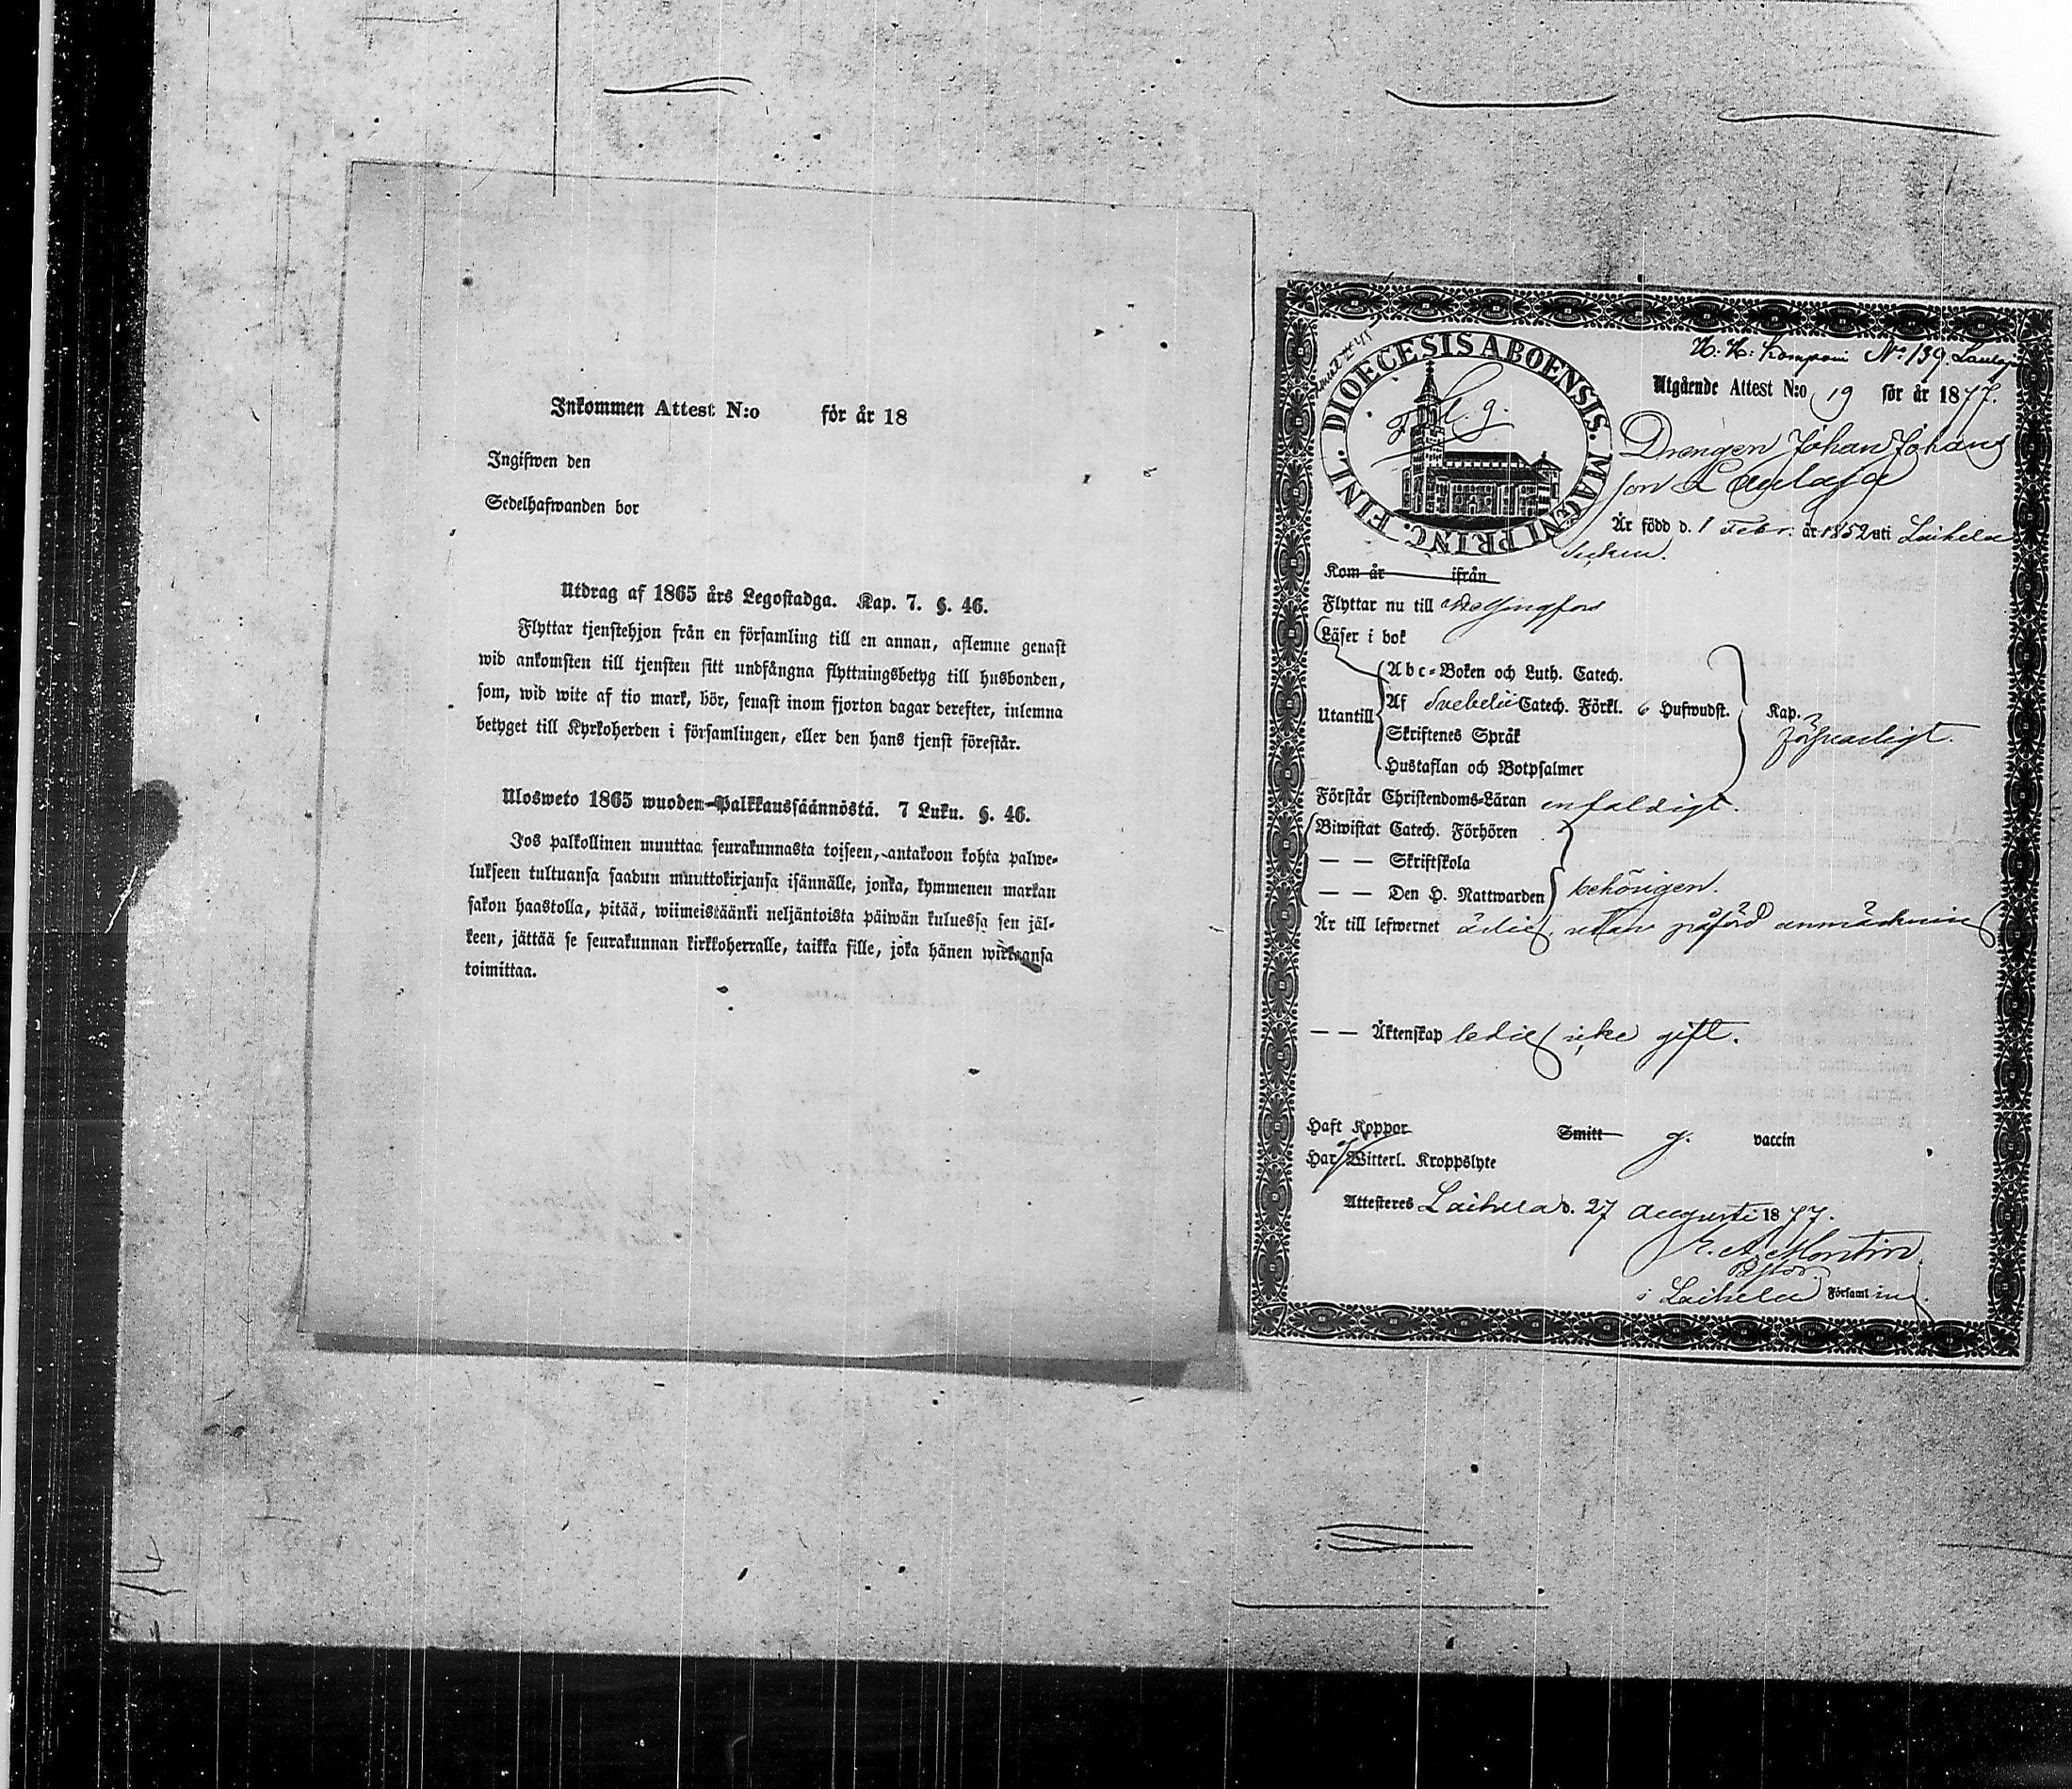 Inkommen Attest N:o för år 18
Ingifwen den
Sedelhafwanden bor
Utdrag af 1865 års Legostadga. Kap. 7. §. 46.
Flyttar tjenstehjon från en församling till en annan, aflemne genast
wid ankomsten till tjensten sitt undfångna flyttningsbetyg till husbonden,
som, wid wite af tio mark, bör, senast inom fjorton dagar derefter, inlemna
betyget till Kyrkoherden i församlingen, eller den hans tjenst förestår.
Ulosweto 1865 wuoden Palkkaussäännöstä. 7 Luku. §. 46.
Jos palkollinen muuttaa seurakunnasta toiseen, antakoon kohta palwe-
lukseen tultuansa saadun muuttokirjansa isännälle, jonka, kymmenen markan
sakon haastolla, pitää, wiimeistäänki neljäntoista päiwän kuluessa sen jäl-
keen, jättää se seurakunnan kirkkoherralle, taikka sille, joka hänen wirkaansa
toimittaa.
N:o 139.
DIOECESIS ABOENSIS. MAGNI PRINC. FINL.
Utgående Attest N:o 19 för år 1877.
Drengen Johan Johans
son Laulaja
Är född d. 1 Febr. år 1852 uti Laihela
socken.
Kom år ifrån
Flyttar nu till Helsingfors
Läser i bok
Abc-Boken och Luth. Catech.
Utantill Af Svebelii Catech. Förkl. 6 Hufwudst. Kap.
Skriftenes Språk
försvarligt.
Hustaflan och Botpsalmer
Förstår Christendoms-Läran enfaldigt.
Biwistat Catech. Förhören
— — Skriftskola
— — Den H. Nattwarden behörigen.
Är till lefwernet ärlig, utan påförd anmärkning
— — Äktenskap ledig icke gift.
Haft Koppor Smitt g. vaccin
Har ej Witterl. Kroppslyte
Attesteres Laihela d. 27 Augusti 1877.
Pastor
i Laihela Församling.